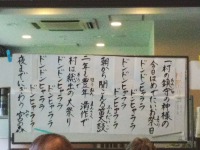 一 村の鎮守の神様の
今日はめでたいお祭日
ドンドンヒャララ
ドンヒャララ
ドンドンヒャララ
ドンヒャララ
朝から聞こえる笛太鼓
二 年も豊年満作で
村は総出の大祭り
ドンドンヒャララ
ドンヒャララ
ドンドンヒャララ
ドンヒャララ
夜までにぎわう宮の森